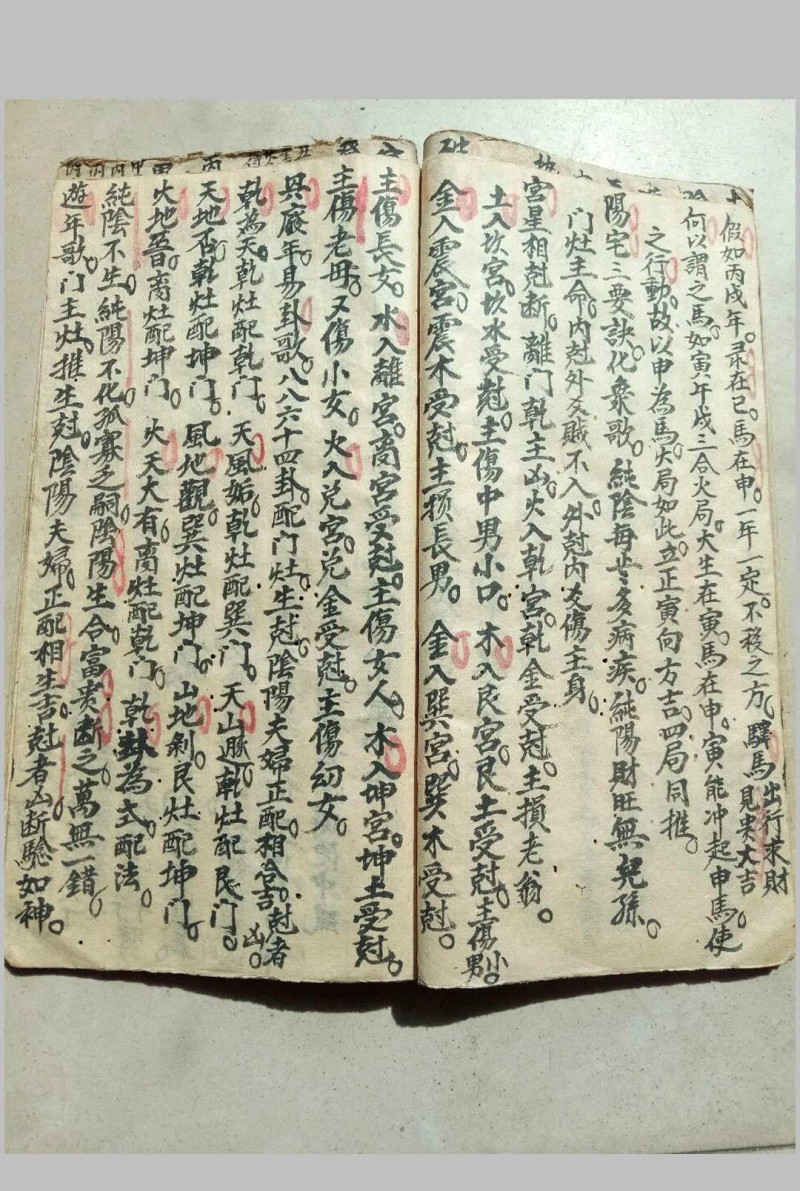 假如丙戌年。录在己。馬在申。一年一定。不移之方。驛馬出行求財見贵大吉
何以謂之馬。如寅午戌三合火局。火生在寅。馬在申。寅能冲起申馬使
之行動。故以申為馬。大局如此。立正寅向方吉。四局同推。
陽宅三要訣化衆歌。純陰每世多病疾。純陽財旺無兒孫。
門灶主命。内尅外交賊不入。外尅内交傷主身。
宮星相尅断。離門乾主凶。火入乾宮。乾金受尅。主損老翁。
土入坎宮。坎水受尅。主傷中男小口。木入艮宮。艮土受尅。主傷小男。
金入震宮。震木受尅。主損長男。金入巽宮。巽木受尅。
主傷長女。水入離宮。离宮受尅。主傷女人。木入坤宮。坤土受尅。
主傷老母。又傷小女。火入兑宮。兑金受尅。主傷幼女。
年易卦歌。八八六十四卦。配門灶生尅。陰陽夫婦正配相合吉。尅者凶。
乾為天。乾灶配乾門。天風姤。乾灶配巽門。天山遯。乾灶配艮門。
天地否。乾灶配坤門。風地觀。巽灶配坤門。山地剝。艮灶配坤門。
火地晋。离灶配坤門。火天大有。离灶配乾門。乾卦為式配法
純陰不生。純陽不化。孤寡乏嗣。陰陽生合富贵。断之萬無一錯。
遊年歌。門主灶。推生尅。陰陽夫婦。正配相生吉。尅者凶。断驗如神。